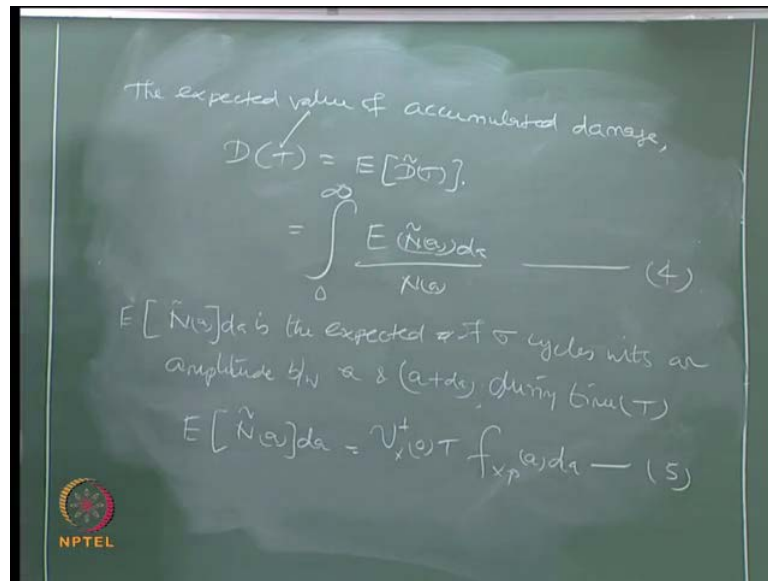 The expected value of accumulated damage,
D(T) = E[D̃(T)].
= ∫₀^∞ E(Ñ(a))da / N(a) ——— (4)
E[Ñ(a)]da is the expected # of σ cycles with an
amplitude b/w a & (a+da), during time (T)
E[Ñ(a)]da = ν⁺ₓ(0)T f_xp(a)da — (5)
NPTEL